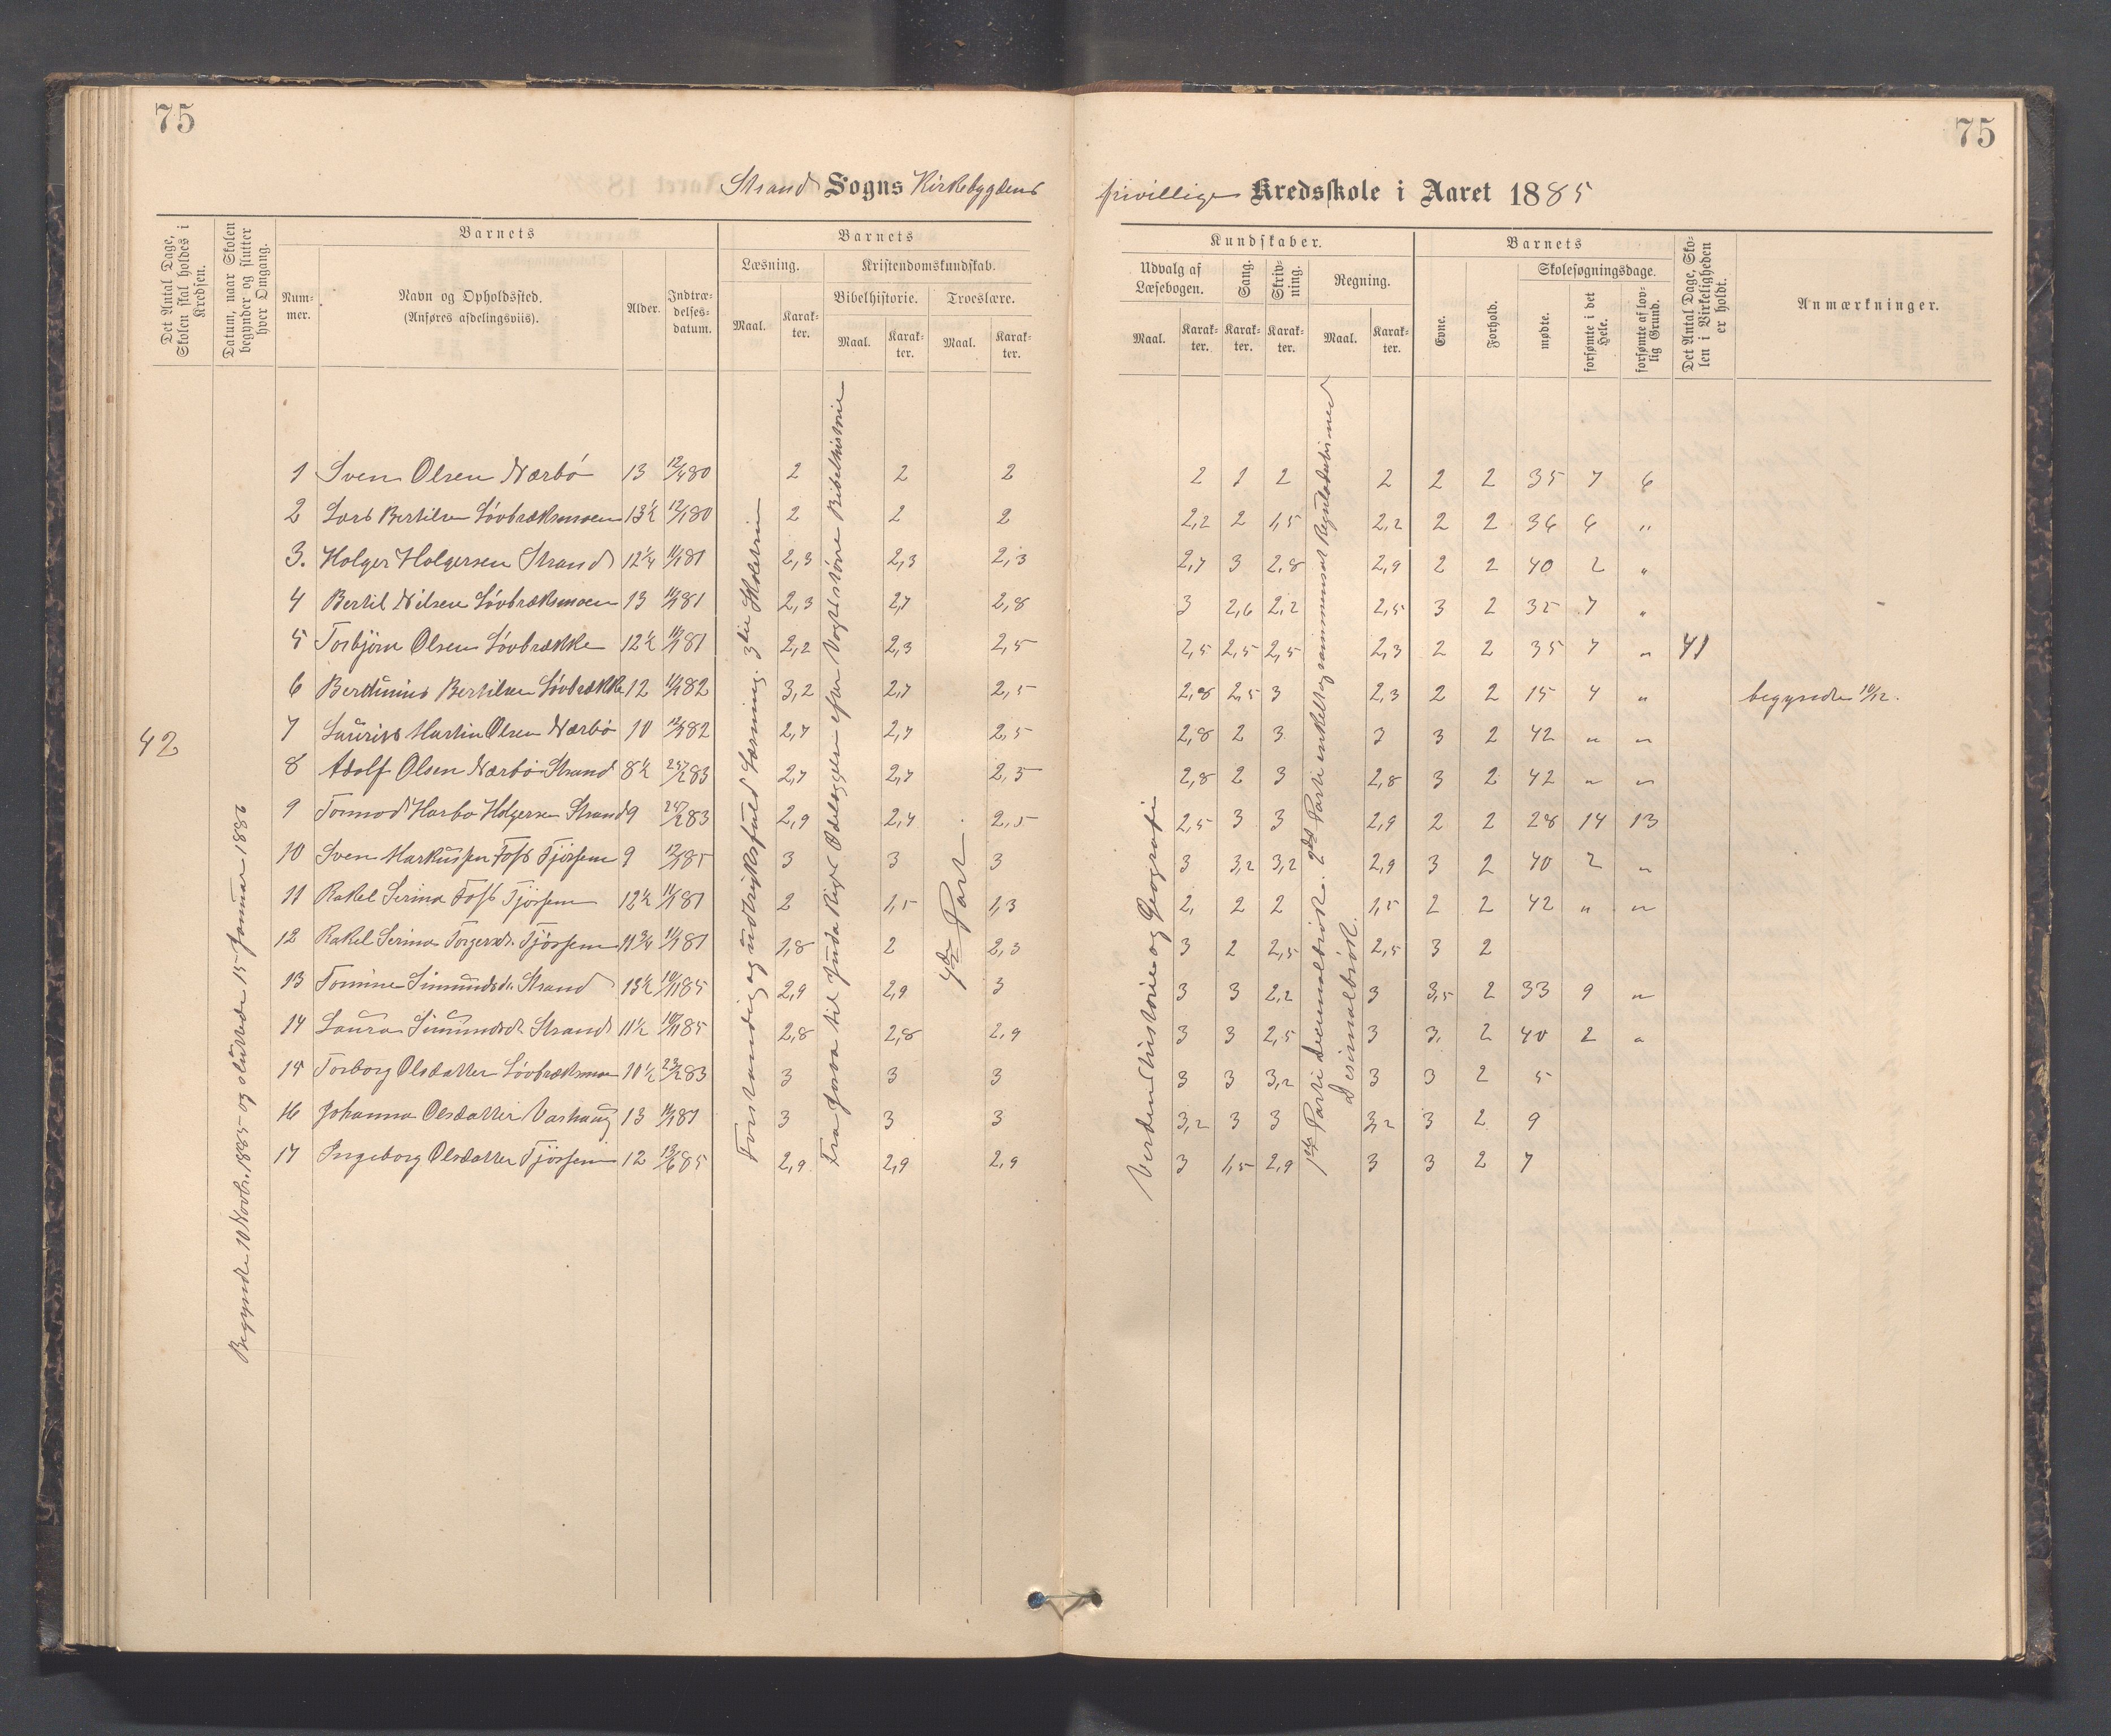 75
75
Strand Sogns Kirkebygdens
frivillige Kredsskole i Aaret 1885
Det Antal Dage, Skolen skal holdes i Kredsen.
Datum, naar Skolen begynder og slutter hver Omgang.
Barnets
Num-mer.
Navn og Opholdssted.
(Anføres afdelingsviis).
Alder.
Indtræ-delses-datum.
Barnets
Læsning.
Maal.
Karak-ter.
Kristendomskundskab.
Bibelhistorie.
Maal.
Karak-ter.
Troeslære.
Maal.
Karak-ter.
Kundskaber.
Udvalg af Læsebogen.
Maal.
Karak-ter.
Sang.
Karak-ter.
Skriv-ning.
Karak-ter.
Regning.
Maal.
Karak-ter.
Barnets
Evne.
Forhold.
Skolesøgningsdage.
mødte.
forsømte i det Hele.
forsømte af lov-lig Grund.
Det Antal Dage, Sko-len i Virkeligheden er holdt.
Anmærkninger.
42
Begyndte 10 Novbr. 1885 og sluttede 15 Januar 1886
Forstandig og udtryksfuld Læsning. 3die Skoletrin
Fra Josva til Juda Riges Ødelæggelse efter Vogts større Bibelhistorie
4de Part.
Verdenshistorie og Geografi
1ste Parti decimalbrøk. 2det Parti enkelt og sammensat Reguladetri med Desimalbrøk.
41
1 Sven Olsen Nærbö 13 12/480 2 2 2 2 1 2 2 2 2 35 7 6
2 Lars Bertilsen Lövbræksmoen 13½ 12/180 2 2 2 2,2 2 1,5 2,2 2 2 36 6 "
3. Holger Holgersen Strand 12¼ 11/181 2,3 2,3 2,3 2,7 3 2,8 2,9 2 2 40 2 "
4 Bertil Nilsen Lövbræksmoen 13 11/181 2,3 2,7 2,8 3 2,6 2,2 2,5 3 2 35 7 "
5 Torbjörn Olsen Lövbrække 12½ 11/181 2,2 2,3 2,5 2,5 2,5 2,5 2,3 2 2 35 7 "
6 Bertunius Bertilsen Lövbrække 12 11/182 3,2 2,7 2,5 2,8 2,5 3 2,3 2 2 15 4 " begyndte 10/12.
7 Laurits Martin Olsen Nærbö 10 12/182 2,7 2,7 2,5 2,8 2 3 3 3 2 42 " "
8 Adolf Olsen Nærbö Strand 8½ 25/283 2,7 2,7 2,5 2,8 2 3 2,8 3 2 42 " "
9 Tormod Harbo Holgersen Strand 9 24/283 2,9 2,4 2,5 2,5 3 3 2,9 2 2 28 14 13
10 Sven Markussen Foss Tjössem 9 12/185 3 3 3 3 3,2 3,2 2,9 3 2 40 2 "
11 Rakel Serina Foss Tjössem 12½ 11/181 2 1,5 1,3 2, 2 2 1,5 2 2 42 " "
12 Rakel Serina Torgersd. Tjössem 11¾ 11/181 1,8 2 2,3 3 2 2,5 2,5 3 2
13 Tomine Simundsd. Strand 13½ 10/1185 2,9 2,9 3 3 3 2,2 3 3,5 2 33 9 "
14 Laura Simundsd. Strand 11½ 10/1185 2,8 2,8 2,9 3 3 2,5 3 3. 2 40 2 "
15 Torborg Olsdatter Lövbræksmoen 10½ 23/283 3 3 3 3 3 3,2 3 3 2 5
16 Johanna Olsdatter Varhaug 13 11/181 3 3 3 3,2 3 3 3,2 3 2 9
17 Ingeborg Olsdatter Tjössem 12 13/685 2,9 2,9 2,9 3 1,5 2,9 3 3 2 7